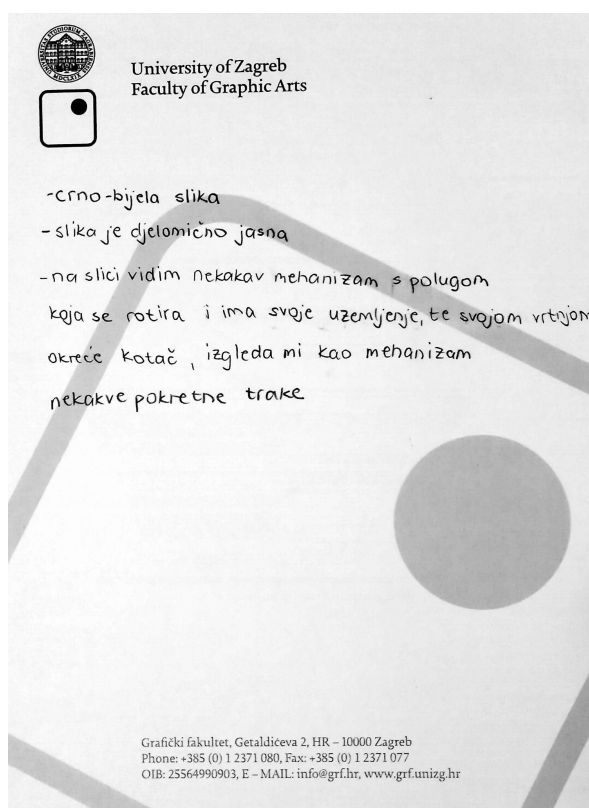 University of Zagreb
Faculty of Graphic Arts
-crno-bijela slika
- slika je djelomično jasna
- na slici vidim nekakav mehanizam s polugom
koja se rotira i ima svoje uzemljenje, te svojom vrtnjom
okreće kotač, izgleda mi kao mehanizam
nekakve pokretne trake
Grafički fakultet, Getaldićeva 2, HR – 10000 Zagreb
Phone: +385 (0) 1 2371 080, Fax: +385 (0) 1 2371 077
OIB: 25564990903, E – MAIL: info@grf.hr, www.grf.unizg.hr